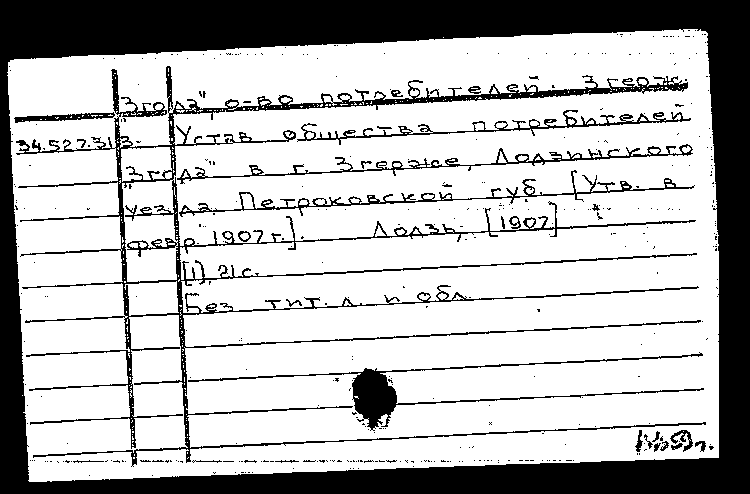 "Згода", о-во потребителей. Згерж.
34.527.313. Устав общества потребителей
"Згода" в г. Згерже, Лодзинского
уезда, Петроковской губ. [Утв. в
февр 1907 г.]. Лодзь, [1907]
[1], 21 с.
Без тит. л. и обл.